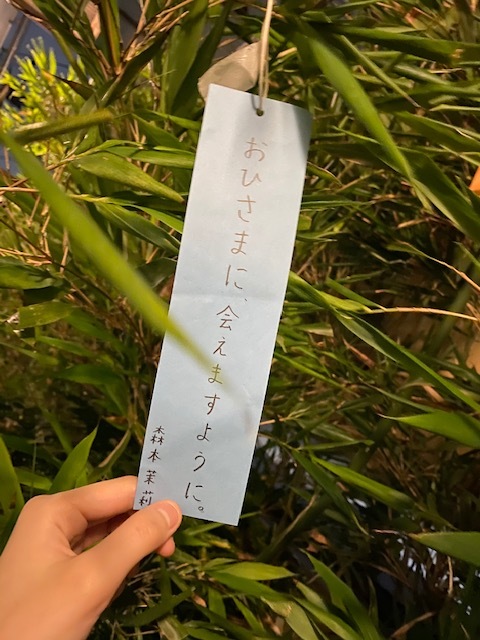 おひさまに、会えますように。
森本茉莉